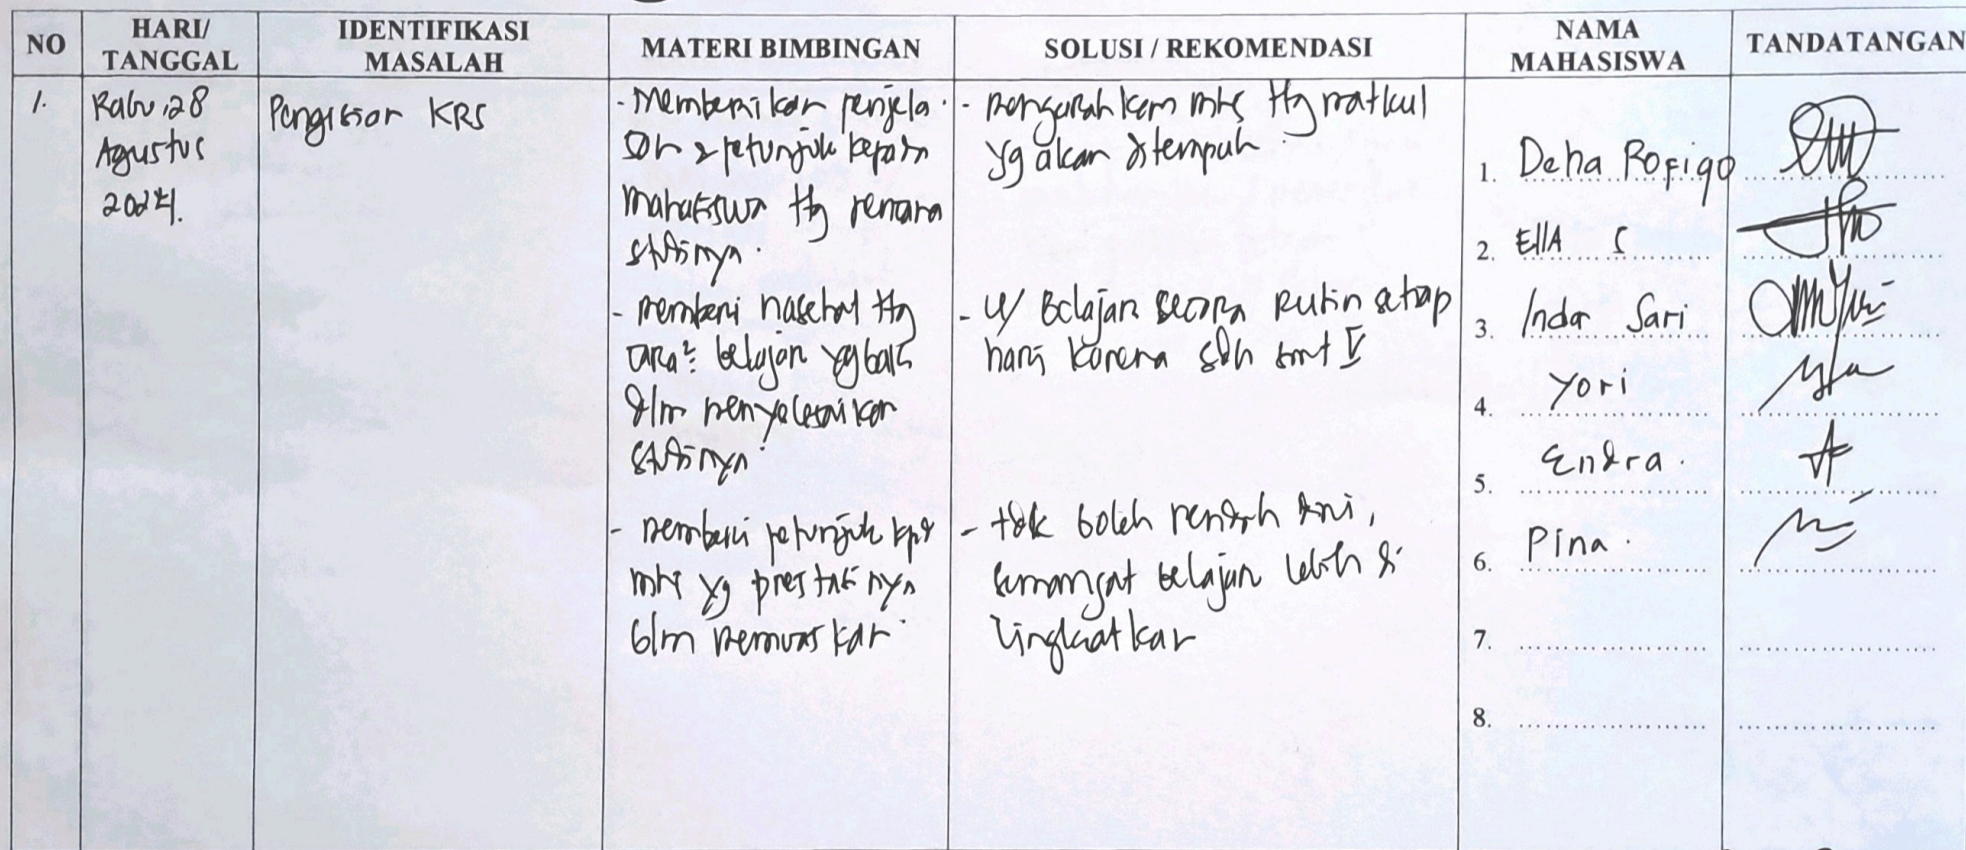 NO
HARI/
TANGGAL
IDENTIFIKASI
MASALAH
MATERI BIMBINGAN
SOLUSI / REKOMENDASI
NAMA
MAHASISWA
TANDATANGAN
1.
Rabu, 28
Agustus
2024.
Pengisian KRS
- Memberikan penjela
san & petunjuk kepada
mahasiswa ttg rencana
studinya.
- memberi nasehat ttg
cara² belajar yg baik
dlm menyelesaikan
studinya.
- memberi petunjuk kpd
mhs yg prestasinya
blm memuaskan
- mengarahkan mhs ttg matkul
yg akan ditempuh.
- u/ Belajar secara rutin setiap
hari karena sdh smt V
- tdk boleh rendah diri,
semangat belajar lebih di
tingkatkan
1. Deha Rofiqo
2. EllA S
3. Inda Sari
4. Yori
5. Endra.
6. Pina.
7.
8.